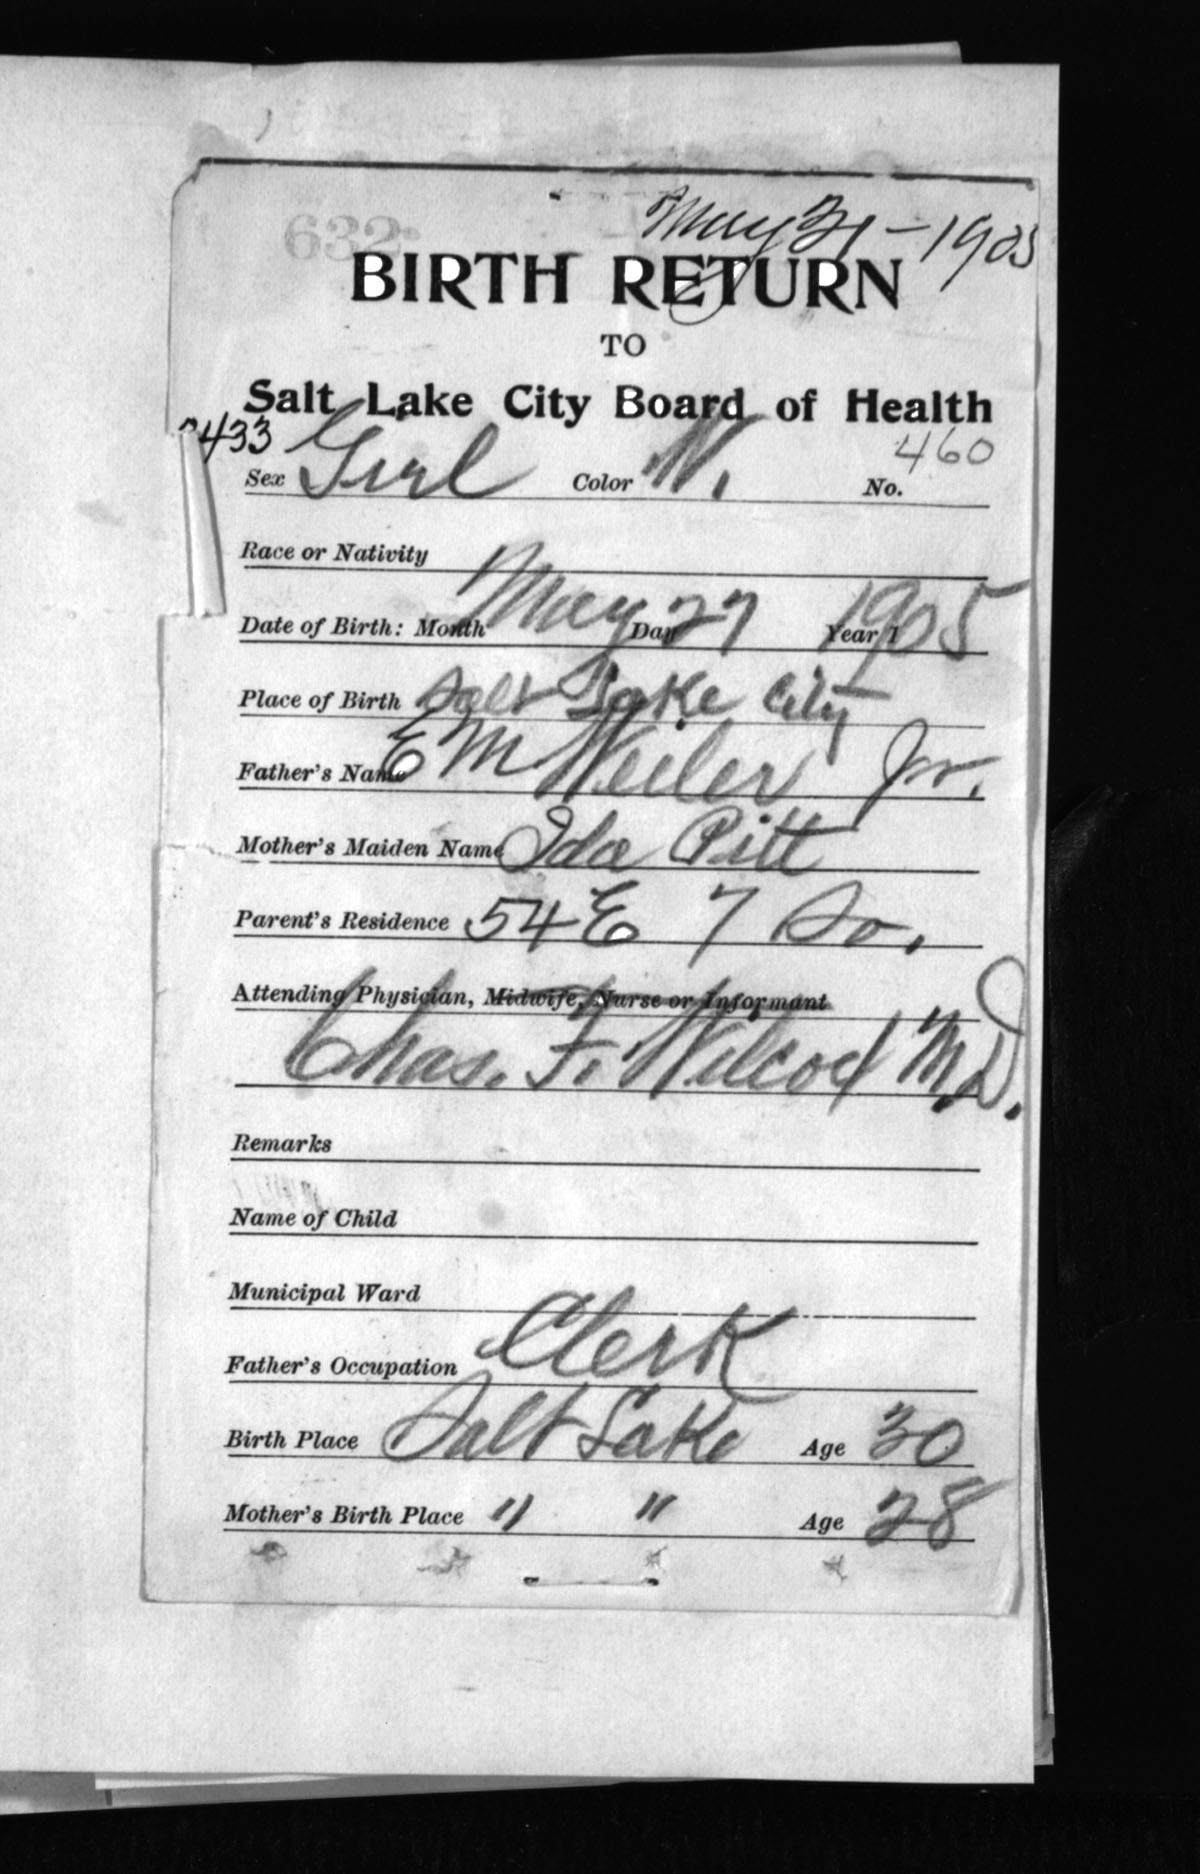 May 31-1905
632
BIRTH RETURN
TO
Salt Lake City Board of Health
2433 460
Sex Girl Color W. No.
Race or Nativity
Date of Birth: Month May Day 27 Year 1 1905
Place of Birth Salt Lake City
Father's Name E M Weiler Jr.
Mother's Maiden Name Ida Pitt
Parent's Residence 54 E 7 So.
Attending Physician, Midwife, Nurse or Informant
Chas. F. Wilcox M.D.
Remarks
Name of Child
Municipal Ward
Father's Occupation Clerk
Birth Place Salt Lake Age 30
Mother's Birth Place " " Age 28